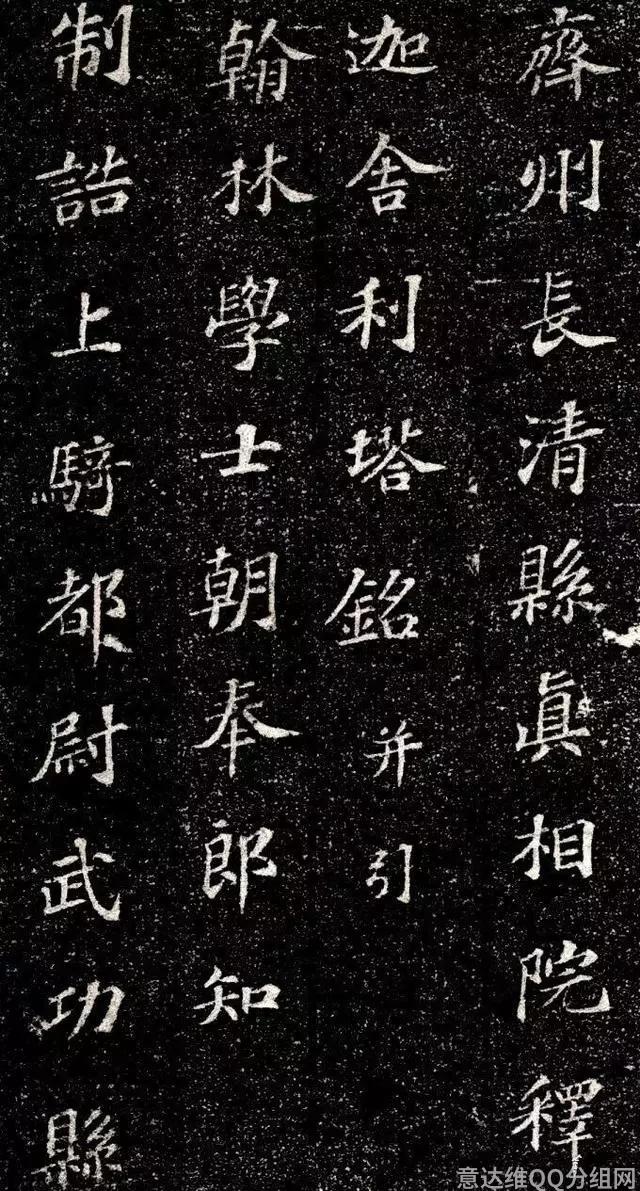 齊州長清縣真相院釋
迦舍利塔銘并引
翰林學士朝奉郎知
制誥上騎都尉武功縣
意达维QQ分组网